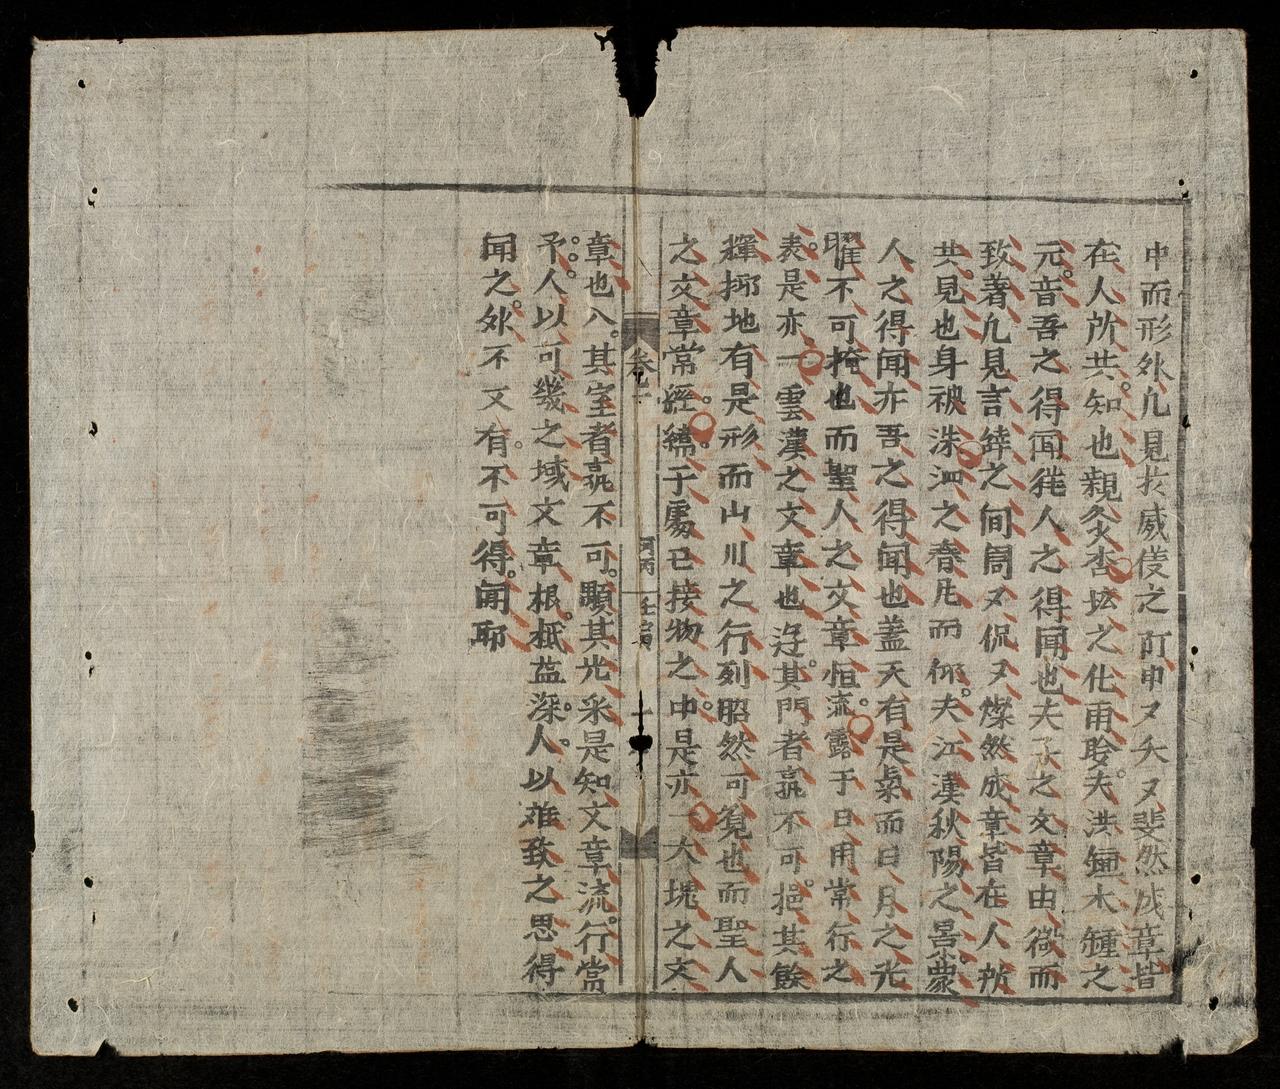 中而形外凡見於威儀之際申〻夭〻斐然成章皆
在人所共知也親炙杏坛之化雨聆夫洪鍾木鍾之
元音吾之得闻犹人之得闻也夫子之文章由微而
致著凡見言辞之间周〻侃〻燦然成章皆在人所
共見也身被洙泗之春风而仰夫江漢秋陽之景蒙
人之得闻亦吾之得闻也蓋天有是象而日月之光
曜不可掩也而聖人之文章恒流露于日用常行之
表是亦一雲漢之文章也逰其門者孰不可挹其餘
輝挪地有是形而山川之行列昭然可覓也而聖人
之文章常經緯于處已接物之中是亦一大塊之文
卷 河丙 壬寅
章也入其室者孰不可顯其光采是知文章流行嘗
予人以可幾之域文章根柢益深人以难致之思得
闻之外不又有不可得闻耶